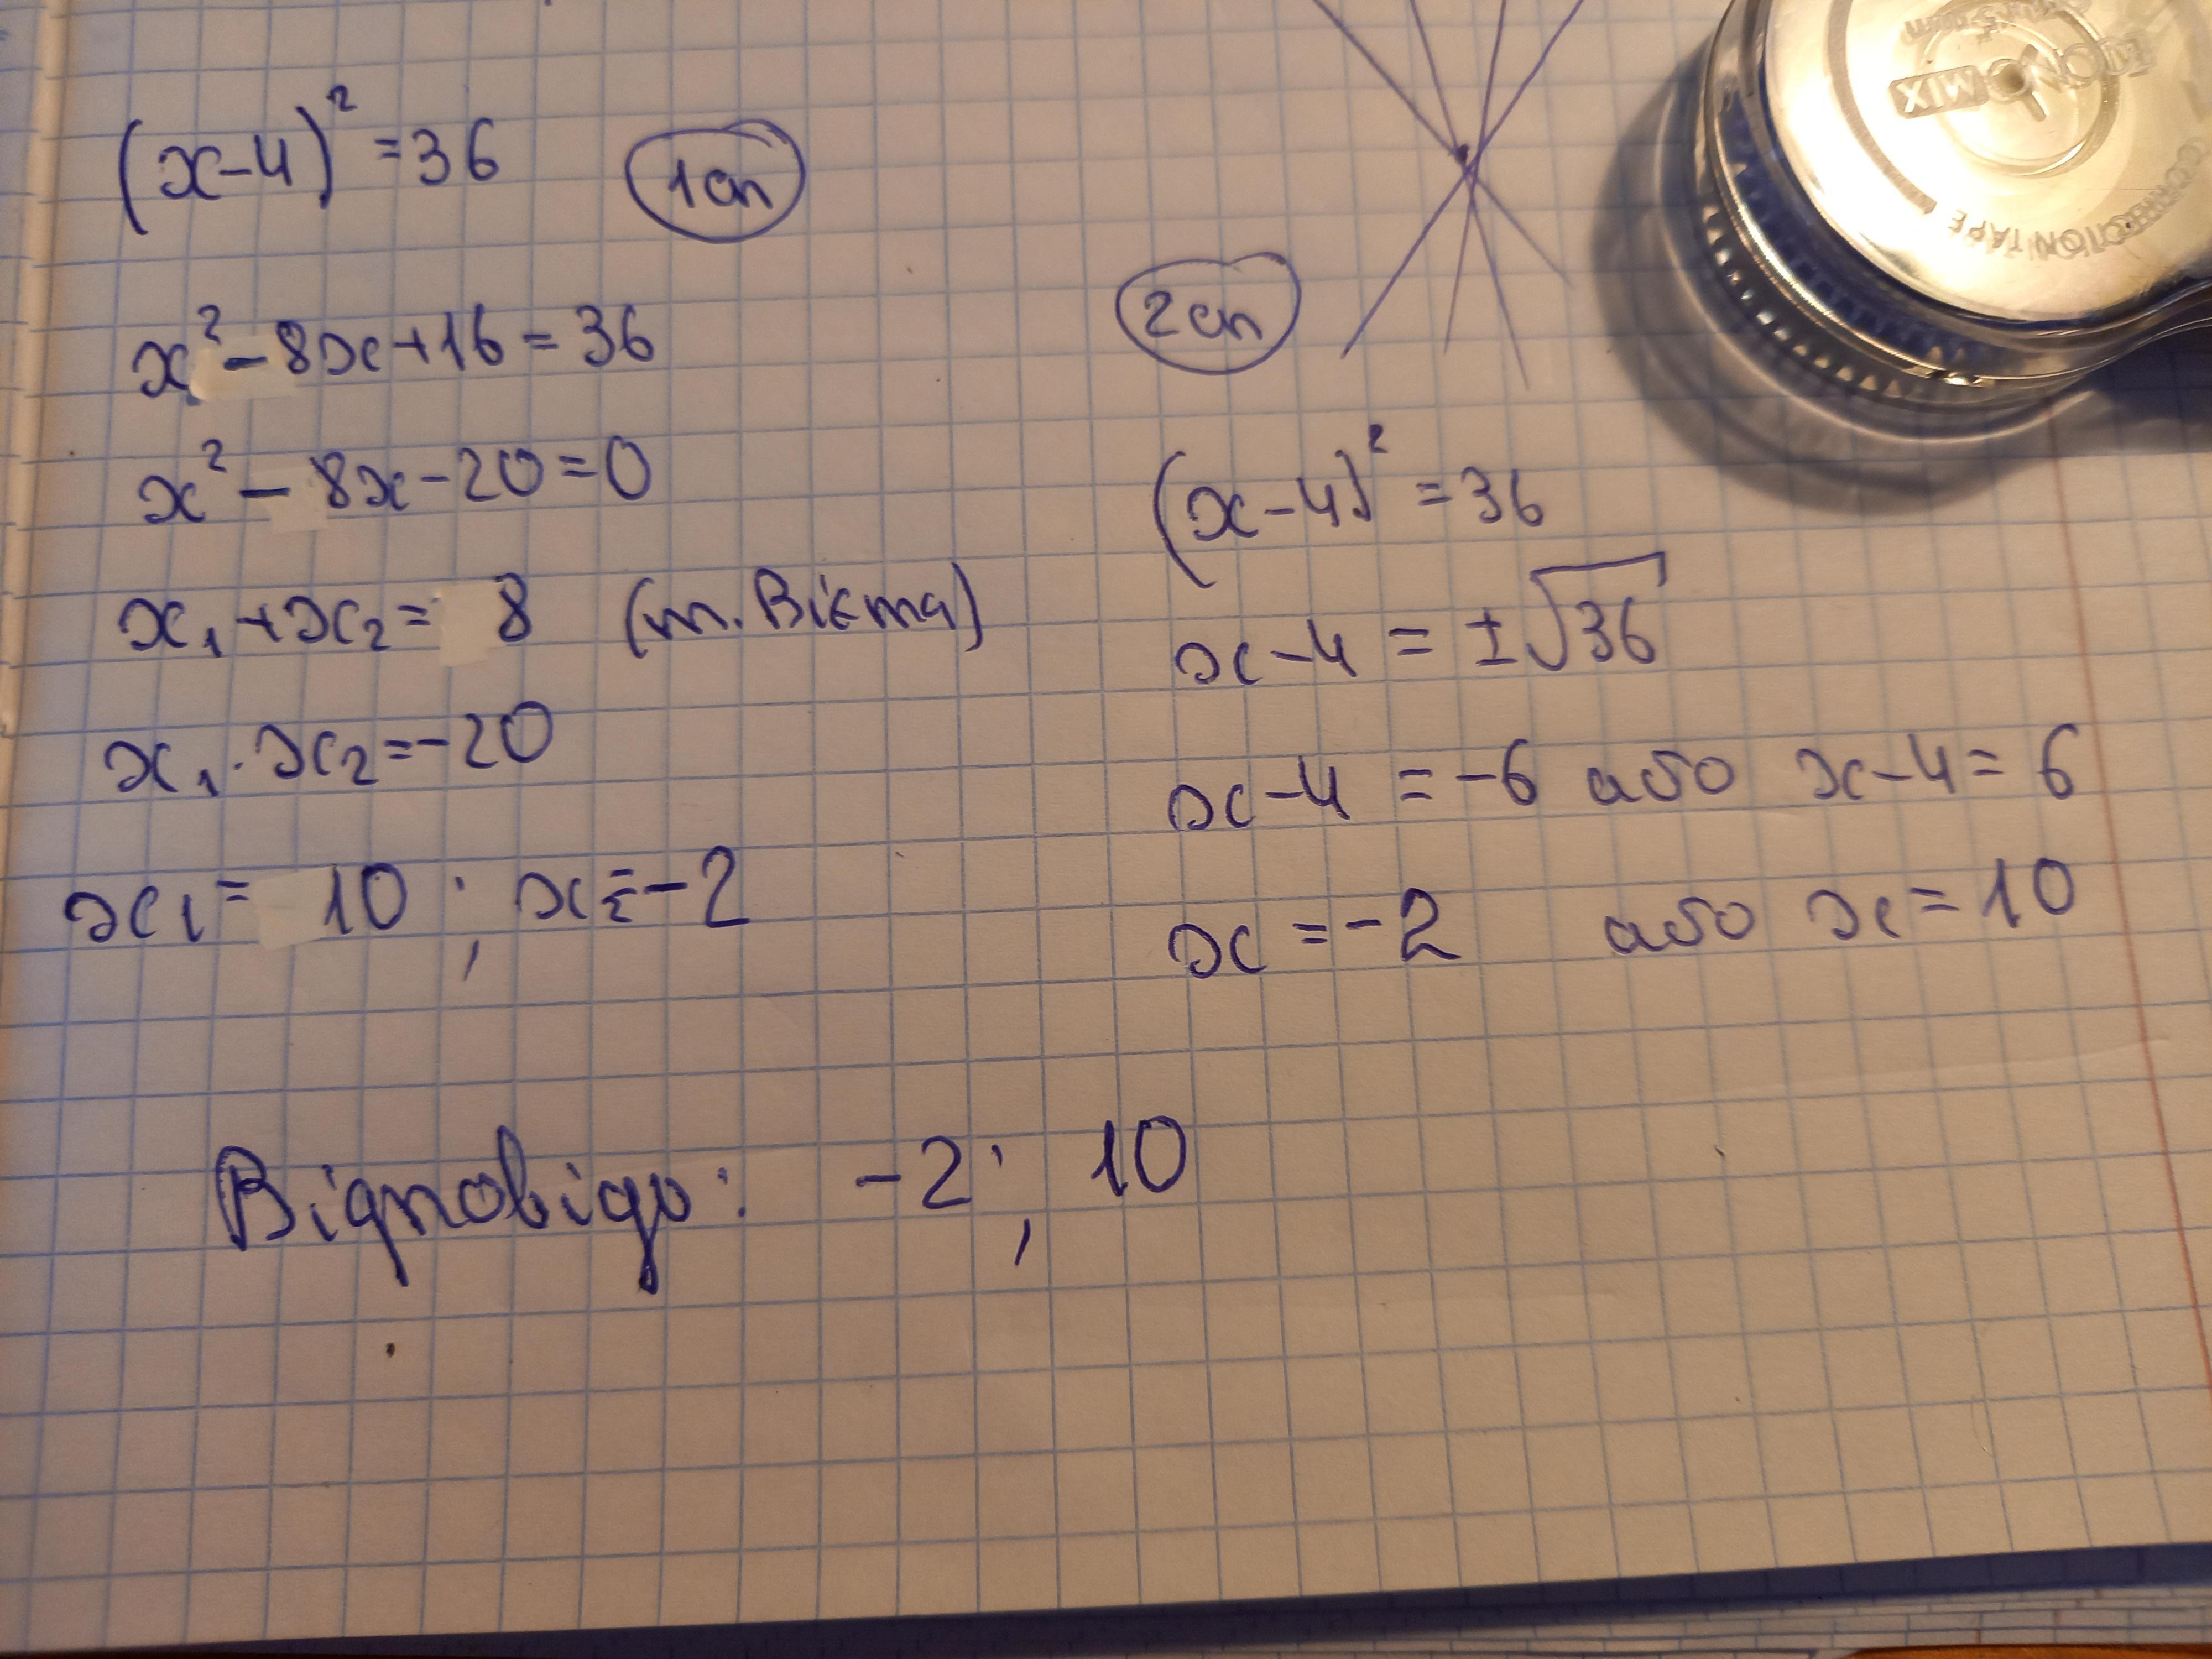 (x-4)² =36
1сп
x²-8x+16=36
x²-8x-20=0
x₁+x₂= 8 (т. Вієта)
x₁·x₂=-20
x₁= 10 ; x₂=-2
2сп
(x-4)² =36
x-4 = ±√36
x-4 = -6 або x-4= 6
x =-2 або x=10
Відповідь: -2; 10
MIX
CORRECTION TAPE